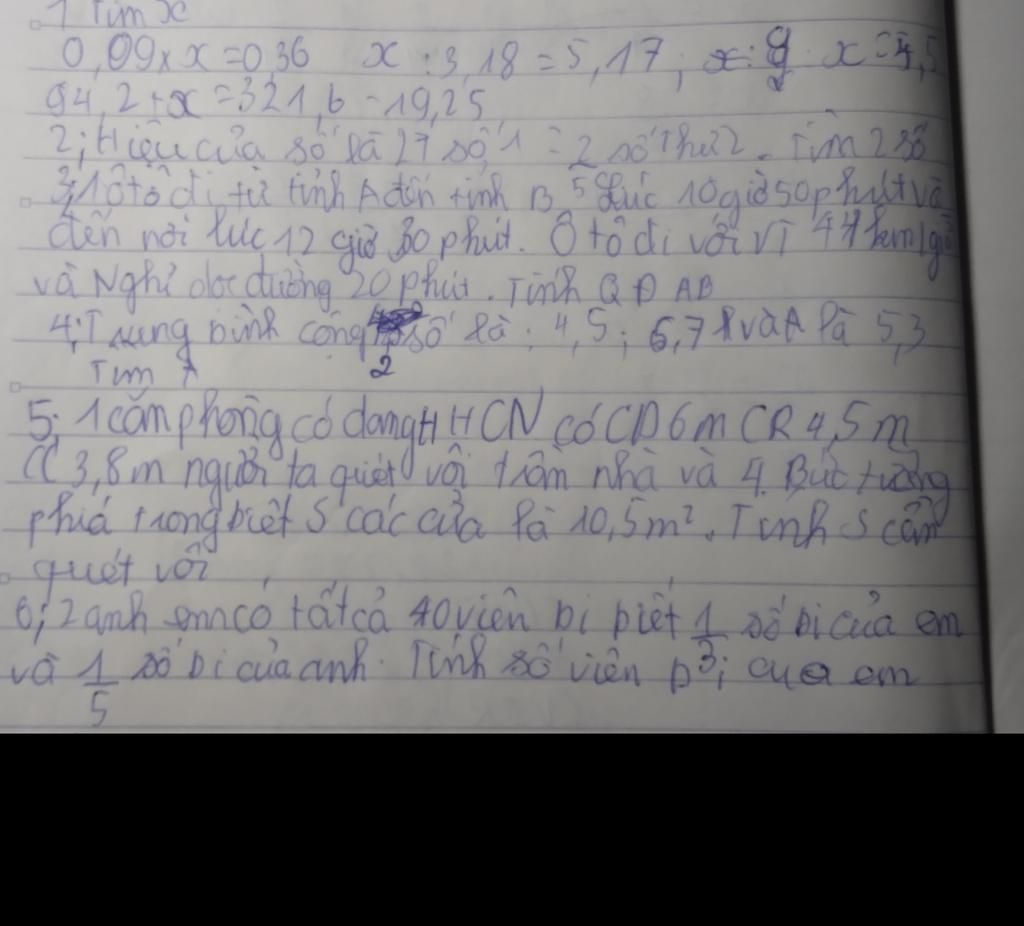 1 Tìm x
0,09 x x = 0,36 x : 3,18 = 5,17; 9 : x = 4,5
94,2 + x = 321,6 - 19,25
2; Hiệu của số là 27 số 1 = 2 số thứ 2. Tìm 2 số
5
3; 1 ô tô đi từ tỉnh A đến tỉnh B lúc 10 giờ 50 phút và
đến nơi lúc 12 giờ 30 phút. Ô tô đi với vt 44 km/giờ
và Nghỉ dọc đường 20 phút. Tính QĐ AB
4; Trung bình cộng số là: 4,5; 6,7 và A là 5,3
2
Tìm A
5; 1 căn phòng có dạng HHCN có CD 6m CR 4,5m
CC 3,8m người ta quét vôi trần nhà và 4 Bức tường
phía trong biết S các cửa là 10,5m². Tính S cần
quét vôi
6; 2 anh em có tất cả 40 viên bi biết 1/3 số bi của em
và 1/5 số bi của anh. Tính số viên bi của em